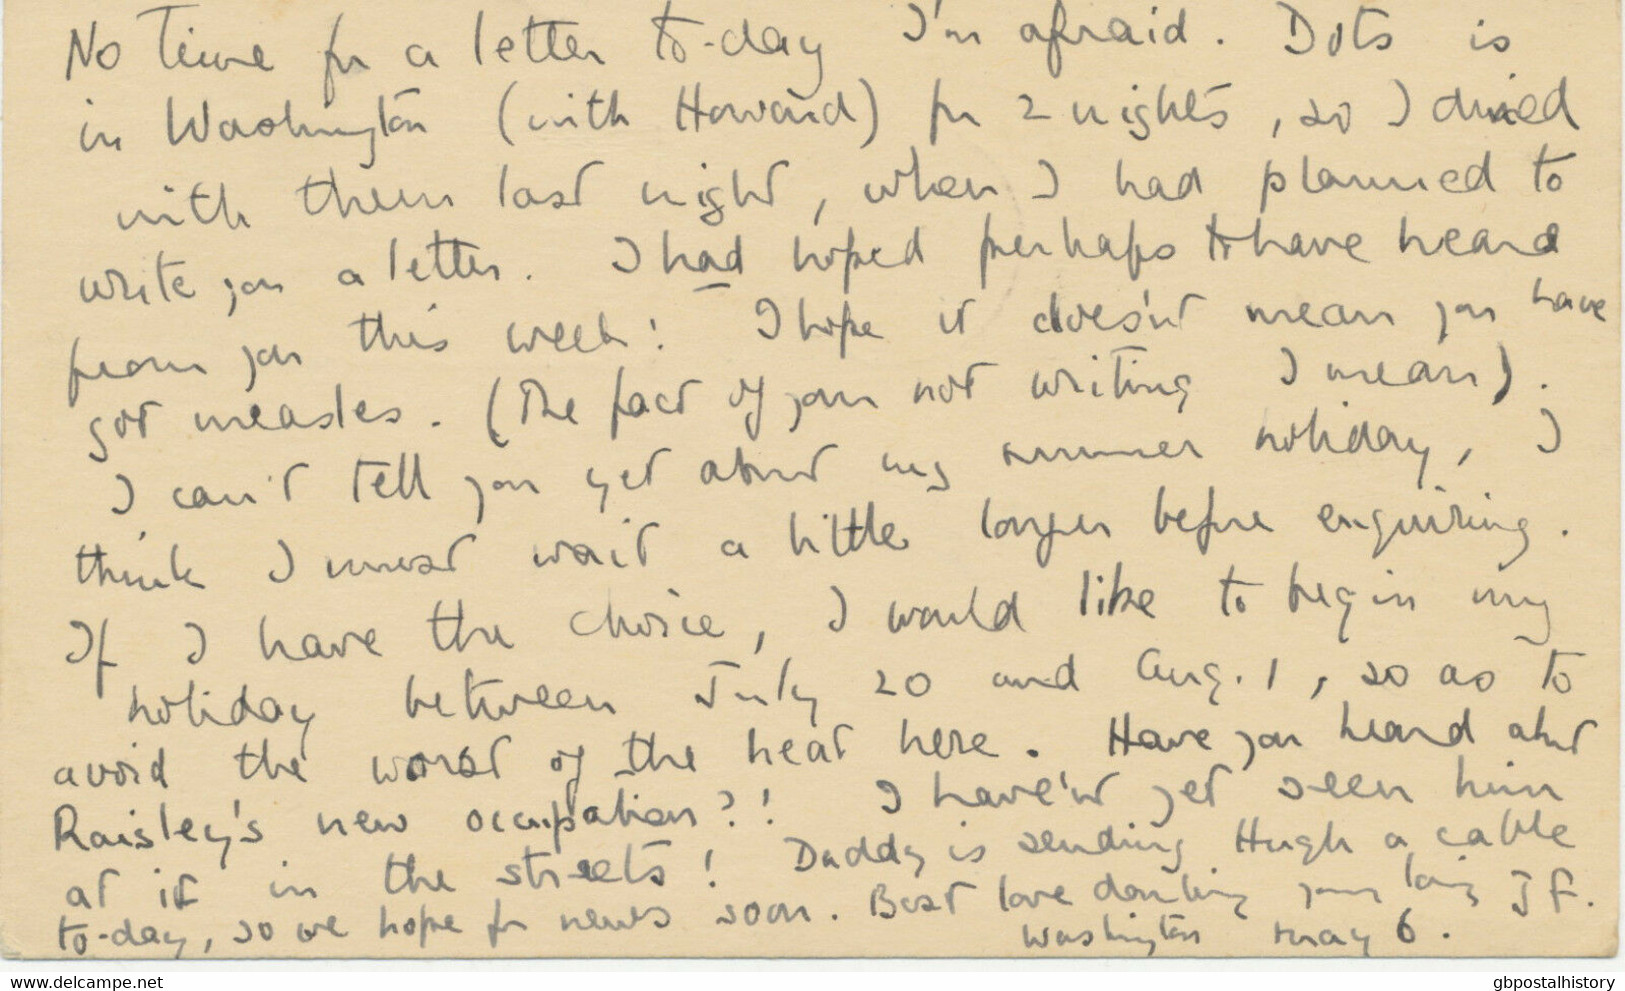 No time for a letter to-day I'm afraid. Dots is
in Washington (with Howard) for 2 nights, so I dined
with them last night, when I had planned to
write you a letter. I had hoped perhaps to have heard
from you this week! I hope it does'nt mean you have
got measles. (The fact of your not writing I mean).
I can't tell you yet about my summer holiday, I
think I must wait a little longer before enquiring.
If I have the choice, I would like to begin my
holiday between July 20 and Aug. 1, so as to
avoid the worst of the heat here. Have you heard about
Raisley's new occupation?! I have'nt yet seen him
at it in the streets! Daddy is sending Hugh a cable
to-day, so we hope for news soon. Best love darling your loving J F.
Washington May 6.
delcampe.net
gbpostalhistory